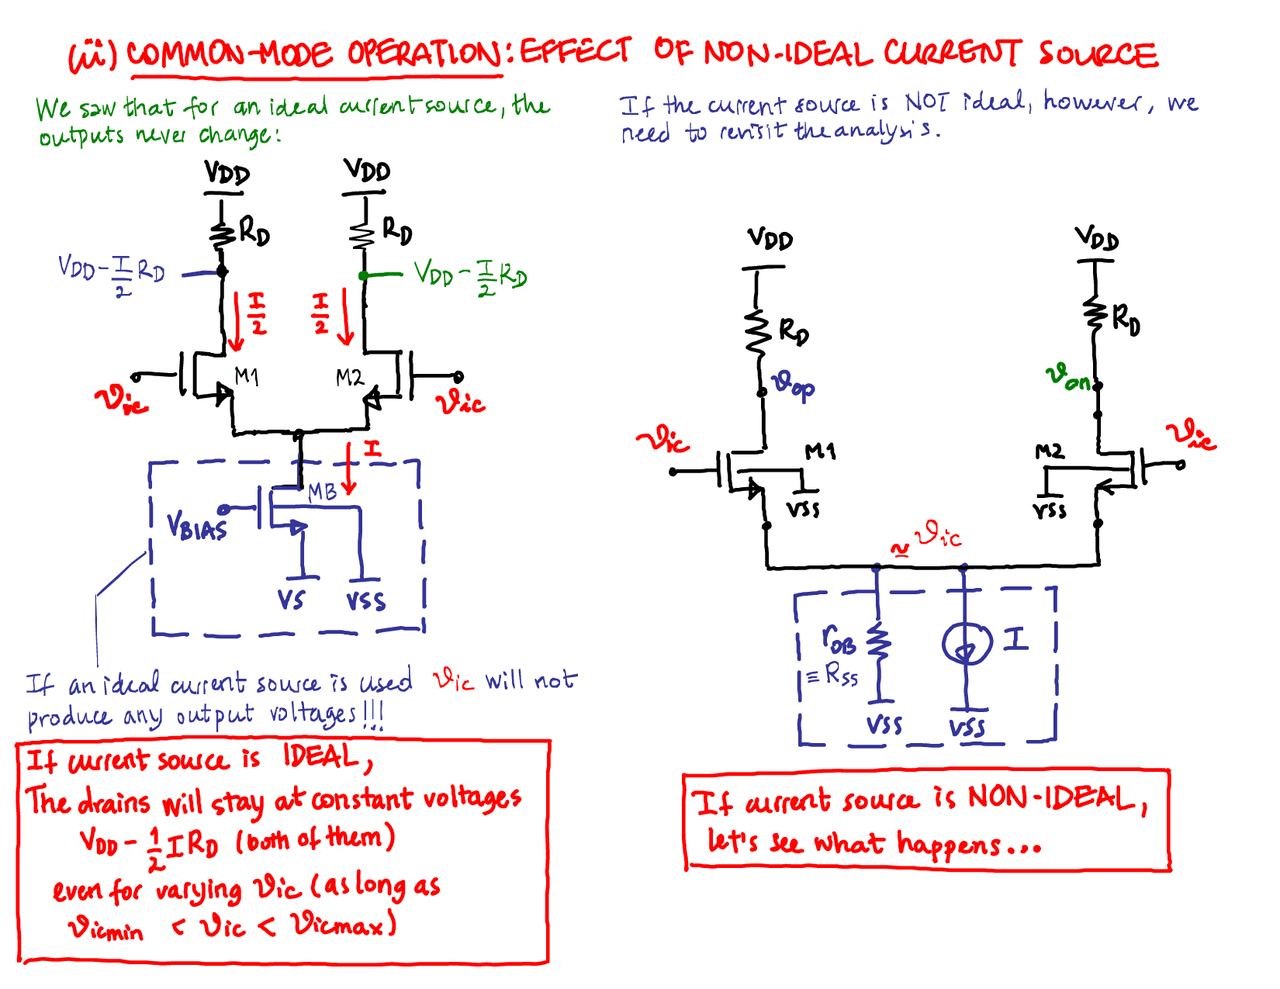 (iii) COMMON-MODE OPERATION: EFFECT OF NON-IDEAL CURRENT SOURCE
We saw that for an ideal current source, the
outputs never change:
VDD
VDD
RD
RD
VDD - I/2 RD
VDD - I/2 RD
I/2
I/2
M1
M2
vic
vic
I
MB
VBIAS
VS
VSS
If an ideal current source is used vic will not
produce any output voltages!!!
If current source is IDEAL,
The drains will stay at constant voltages
VDD - 1/2 IRD (both of them)
even for varying vic (as long as
vicmin < vic < vicmax)
If the current source is NOT ideal, however, we
need to revisit the analysis.
VDD
VDD
RD
RD
vop
von
vic
vic
M1
M2
VSS
VSS
≈ vic
roB
≡ RSS
I
VSS
VSS
If current source is NON-IDEAL,
let's see what happens...